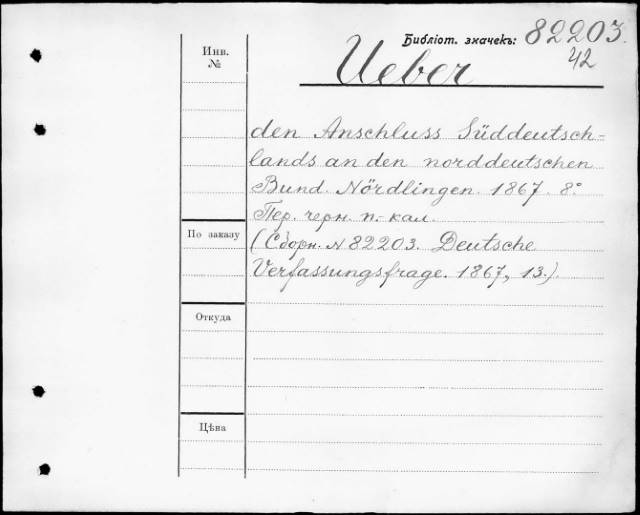 Библіот. значекъ: 82203.
42
Инв.
№
Ueber
den Anschluss Süddeutsch-
lands an den norddeutschen
Bund. Nördlingen. 1867. 8°
Пер. черн. п.-кал.
По заказу
(Сборн. № 82203. Deutsche
Verfassungsfrage. 1867, 13.)
Откуда
Цѣна